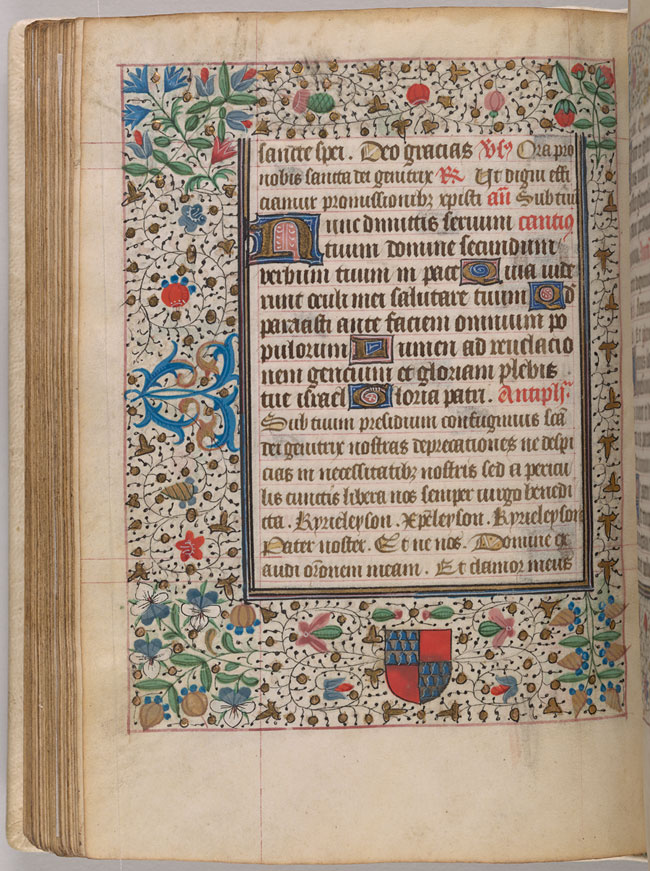 sancte spei . Deo gracias Vs Ora pro
nobis sancta dei genitrix R Ut digni effi
ciamur promissionibz xpisti añ Sub tuu
Nunc dimittis seruum cantiq
tuum domine secundum
verbum tuum in pace Quia uide
runt oculi mei salutare tuum Qd
parasti ante faciem omnium po
pulorum Lumen ad reuelacio
nem gencium et gloriam plebis
tue israel Gloria patri . Antiph
Sub tuum presidium confugimus scã
dei genitrix nostras deprecationes ne despi
cias in necessitatibz nostris sed a pericu
lis cunctis libera nos semper uirgo benedi
cta . Kyrieleyson . Xpeleyson . Kyrieleyson
Pater noster . Et ne nos . Domine ex
audi orõnem meam . Et clamor meus